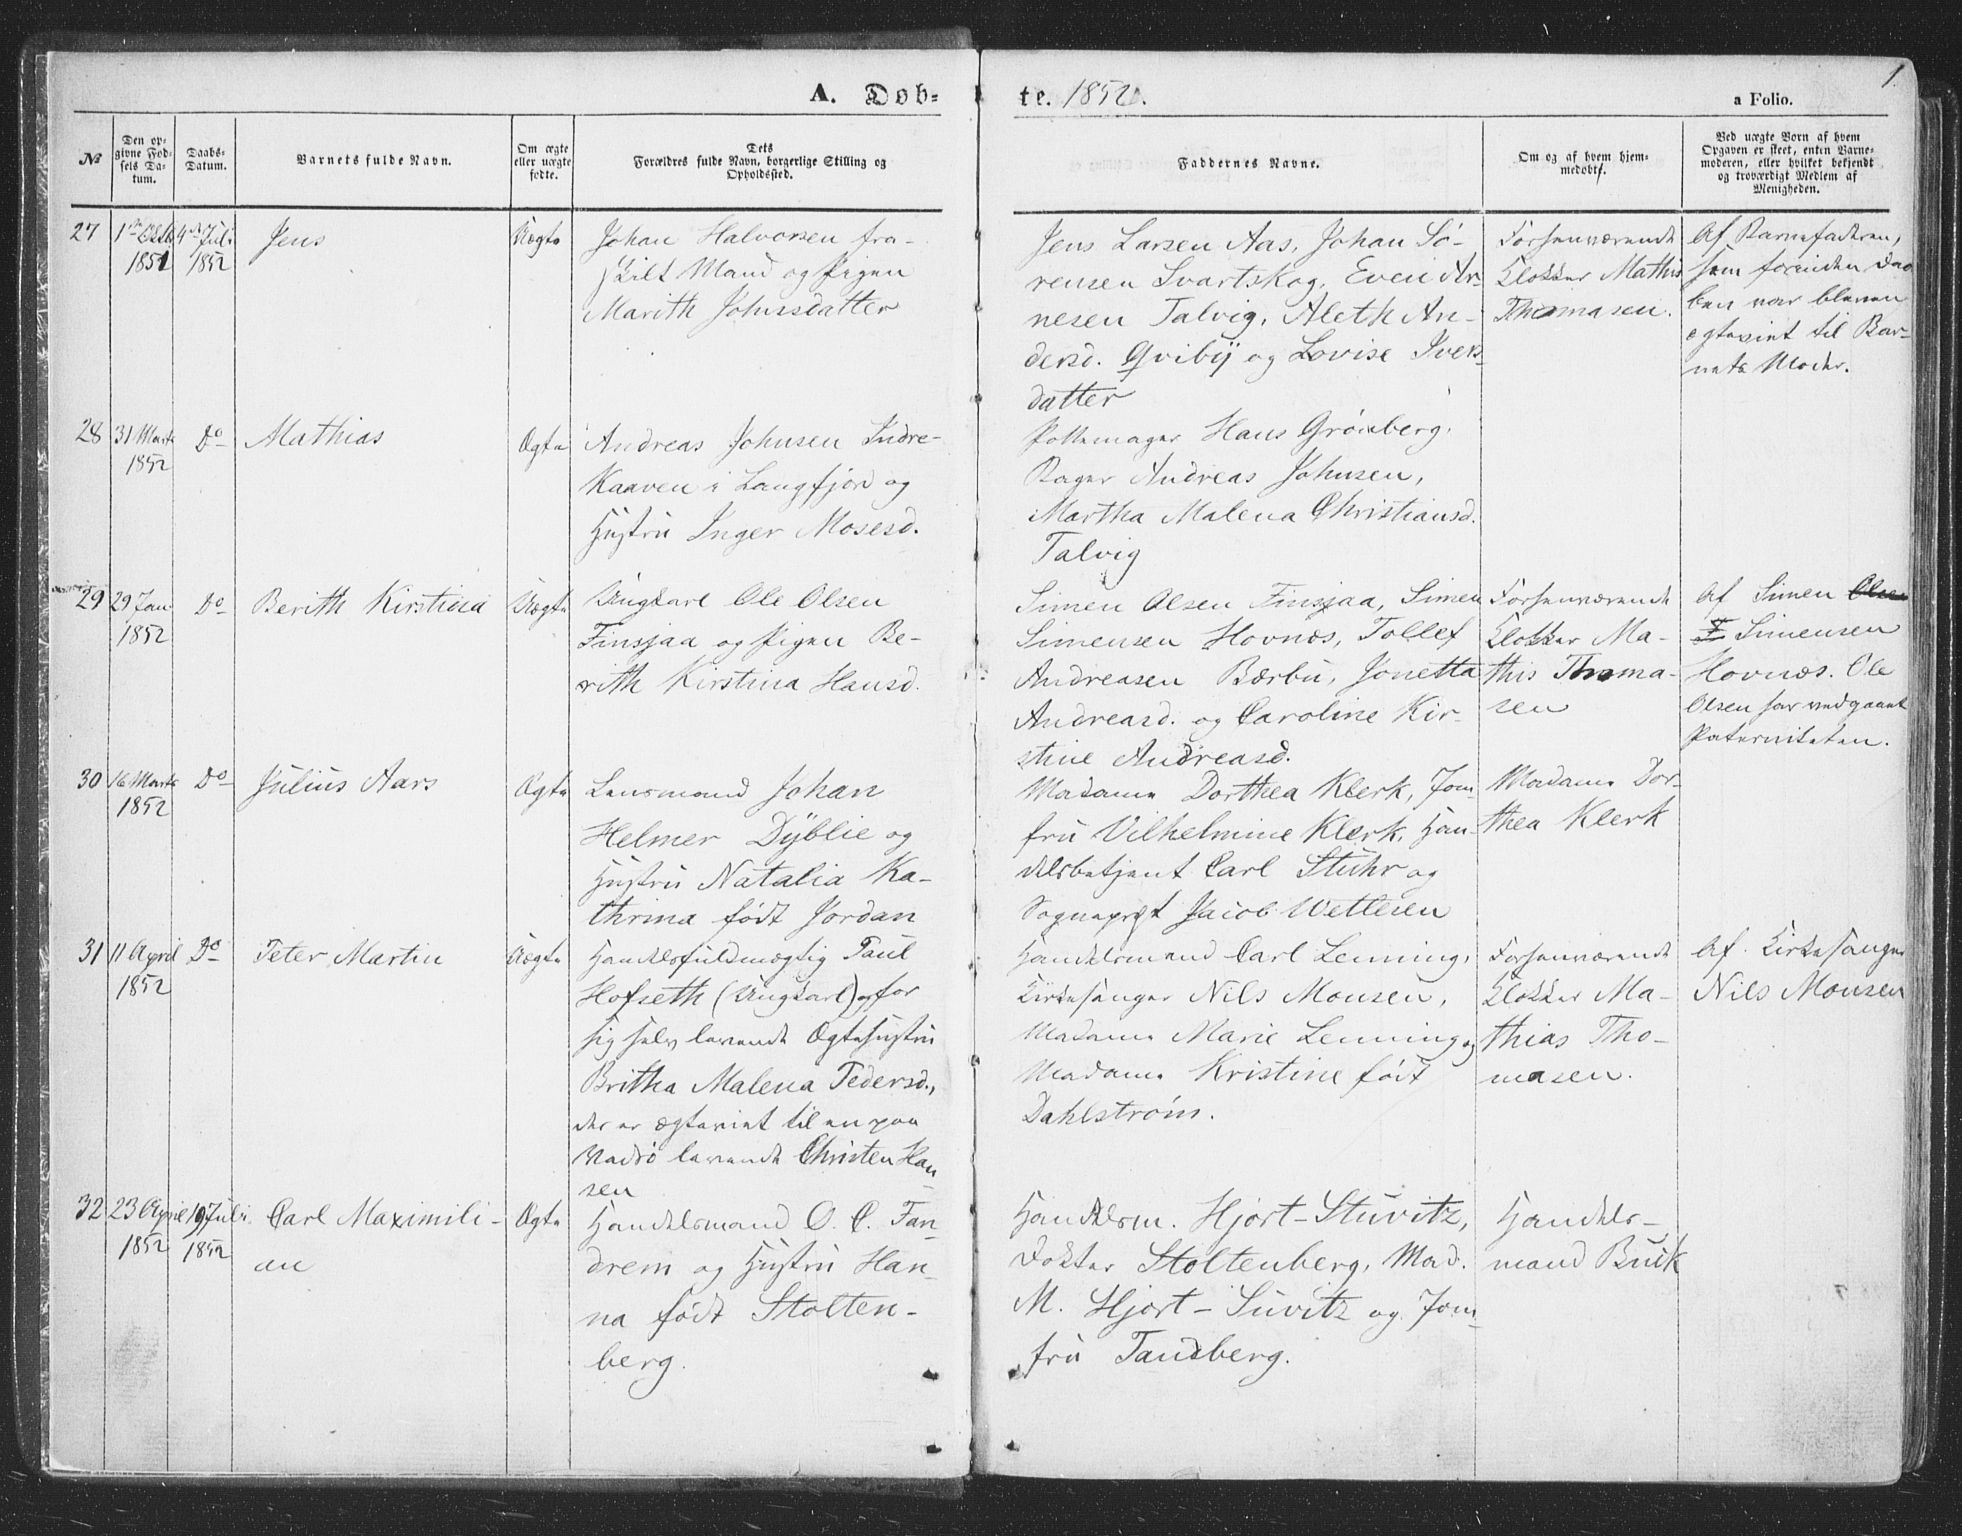 A. Døb-
te. 1852.
1.
a Folio.
No
Den op-
givne Fød-
sels Da-
tum.
Daabs-
Datum.
Barnets fulde Navn.
Om ægte
eller uægte
fødte.
Dets
Forældres fulde Navn, borgerlige Stilling og
Opholdssted.
Faddernes Navne.
Om og af hvem hjem-
medøbt.
Ved uægte Born af hvem
Opgaven er skeet, enten Barne-
moderen, eller hvilket bekjendt
og troværdigt Medlem af
Menigheden.
27
1851
4de Juli
1852
Jens
Uægte
Johan Halvorsen fra-
skilt Mand og Pigen
Marith Johnsdatter
Jens Larsen Aas, Johan Sö-
rensen Svartskog, Even Ar-
nesen Talvig, Aleth An-
dersd. Qviby og Lovise Ivers-
datter
Forhenværende
Klokker Mathis
Thomasen.
Af Barnefaderen,
som forinden Daa
ben var bleven
egteviet til Bar-
nets Moder.
28
31 Marts
1852
Do
Mathias
Ægte
Andreas Johnsen Indre-
Kaaven i Langfjord og
Hustru Inger Mosesd.
Pottemager Hans Grönberg,
Bager Andreas Johnsen,
Martha Malena Christiansd.
Talvig
29
29 Jan
1852
Do
Berith Kirstina
Uægte
Ungkarl Ole Olsen
Finsjaa og Pigen Be-
rith Kirstina Hansd.
Simen Olsen Finsjaa, Simen
Simensen Hovnæs, Tollef
Andreasen Bærbu, Jonetta
Andreasd. og Caroline Kir-
stine Andreasd.
Forhenværende
Klokker Ma-
this Thoma-
sen
Af Simen Olsen
F Simensen
Hovnæs. Ole
Olsen har vedgaaet
Paterniteten.
30
16 Marts
1852
Do
Julius Aars
Ægte
Lensmand Johan
Helmer Dyblie og
Hustru Natalia Ka-
thrina född Jordan
Madame Dorthea Klerk, Jom-
fru Vilhelmine Klerk, Han-
delsbetjent Carl Stuhr og
Sogneprest Jacob Wetlesen
Madame Dor-
thea Klerk
31
11 April
1852
Do
Peter Martin
Uægte
Handelsfuldmægtig Paul
Hofseth (Ungkarl) og for
sig selv levende Ægtehustru
Britha Malena Pedersd.,
der er ægteviet til en paa
Vadsö levende Christen Han
sen
Handelsmand Carl Lenning,
Kirkesanger Nils Monsen,
Madame Marie Lenning og
Madame Kristine födt
Dahlström.
Forhenværende
Klokker Ma-
thias Tho-
masen.
Af Kirkesanger
Nils Monsen
32
23 April
1852
19 Juli
1852
Carl Maximili-
an
Ægte
Handelsmand O. C. Tan-
drem og Hustru Han-
na födt Stolten-
berg.
Handelsm. Hjort-Stuvitz,
Doktor Stoltenberg, Mad.
M. Hjort-Suvitz og Jom-
fru Tandberg.
Handels-
mand Buck